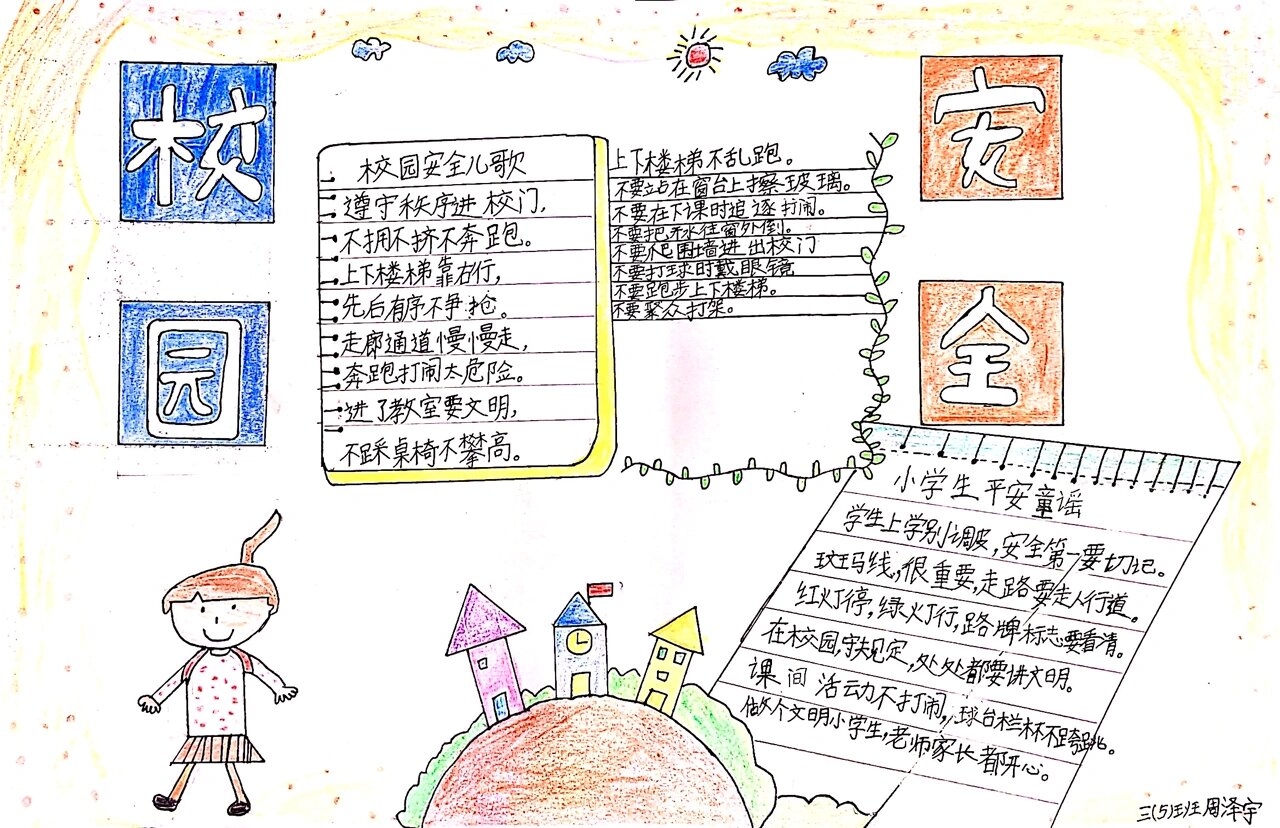 校园
安全
校园安全儿歌
遵守秩序进校门,
不拥不挤不奔跑。
上下楼梯靠右行,
先后有序不争抢。
走廊通道慢慢走,
奔跑打闹太危险。
进了教室要文明,
不踩桌椅不攀高。
上下楼梯不乱跑。
不要站在窗台上擦玻璃。
不要在下课时追逐打闹。
不要把水往窗外倒。
不要爬围墙进出校门
不要打球时戴眼镜
不要跑步上下楼梯。
不要聚众打架。
小学生平安童谣
学生上学别调皮,安全第一要切记。
斑马线,很重要,走路要走人行道。
红灯停,绿灯行,路牌标志要看清。
在校园,守规定,处处都要讲文明。
课间活动不打闹,球台栏杯不跨跳。
做个文明小学生,老师家长都开心。
三(5)班 周泽宇